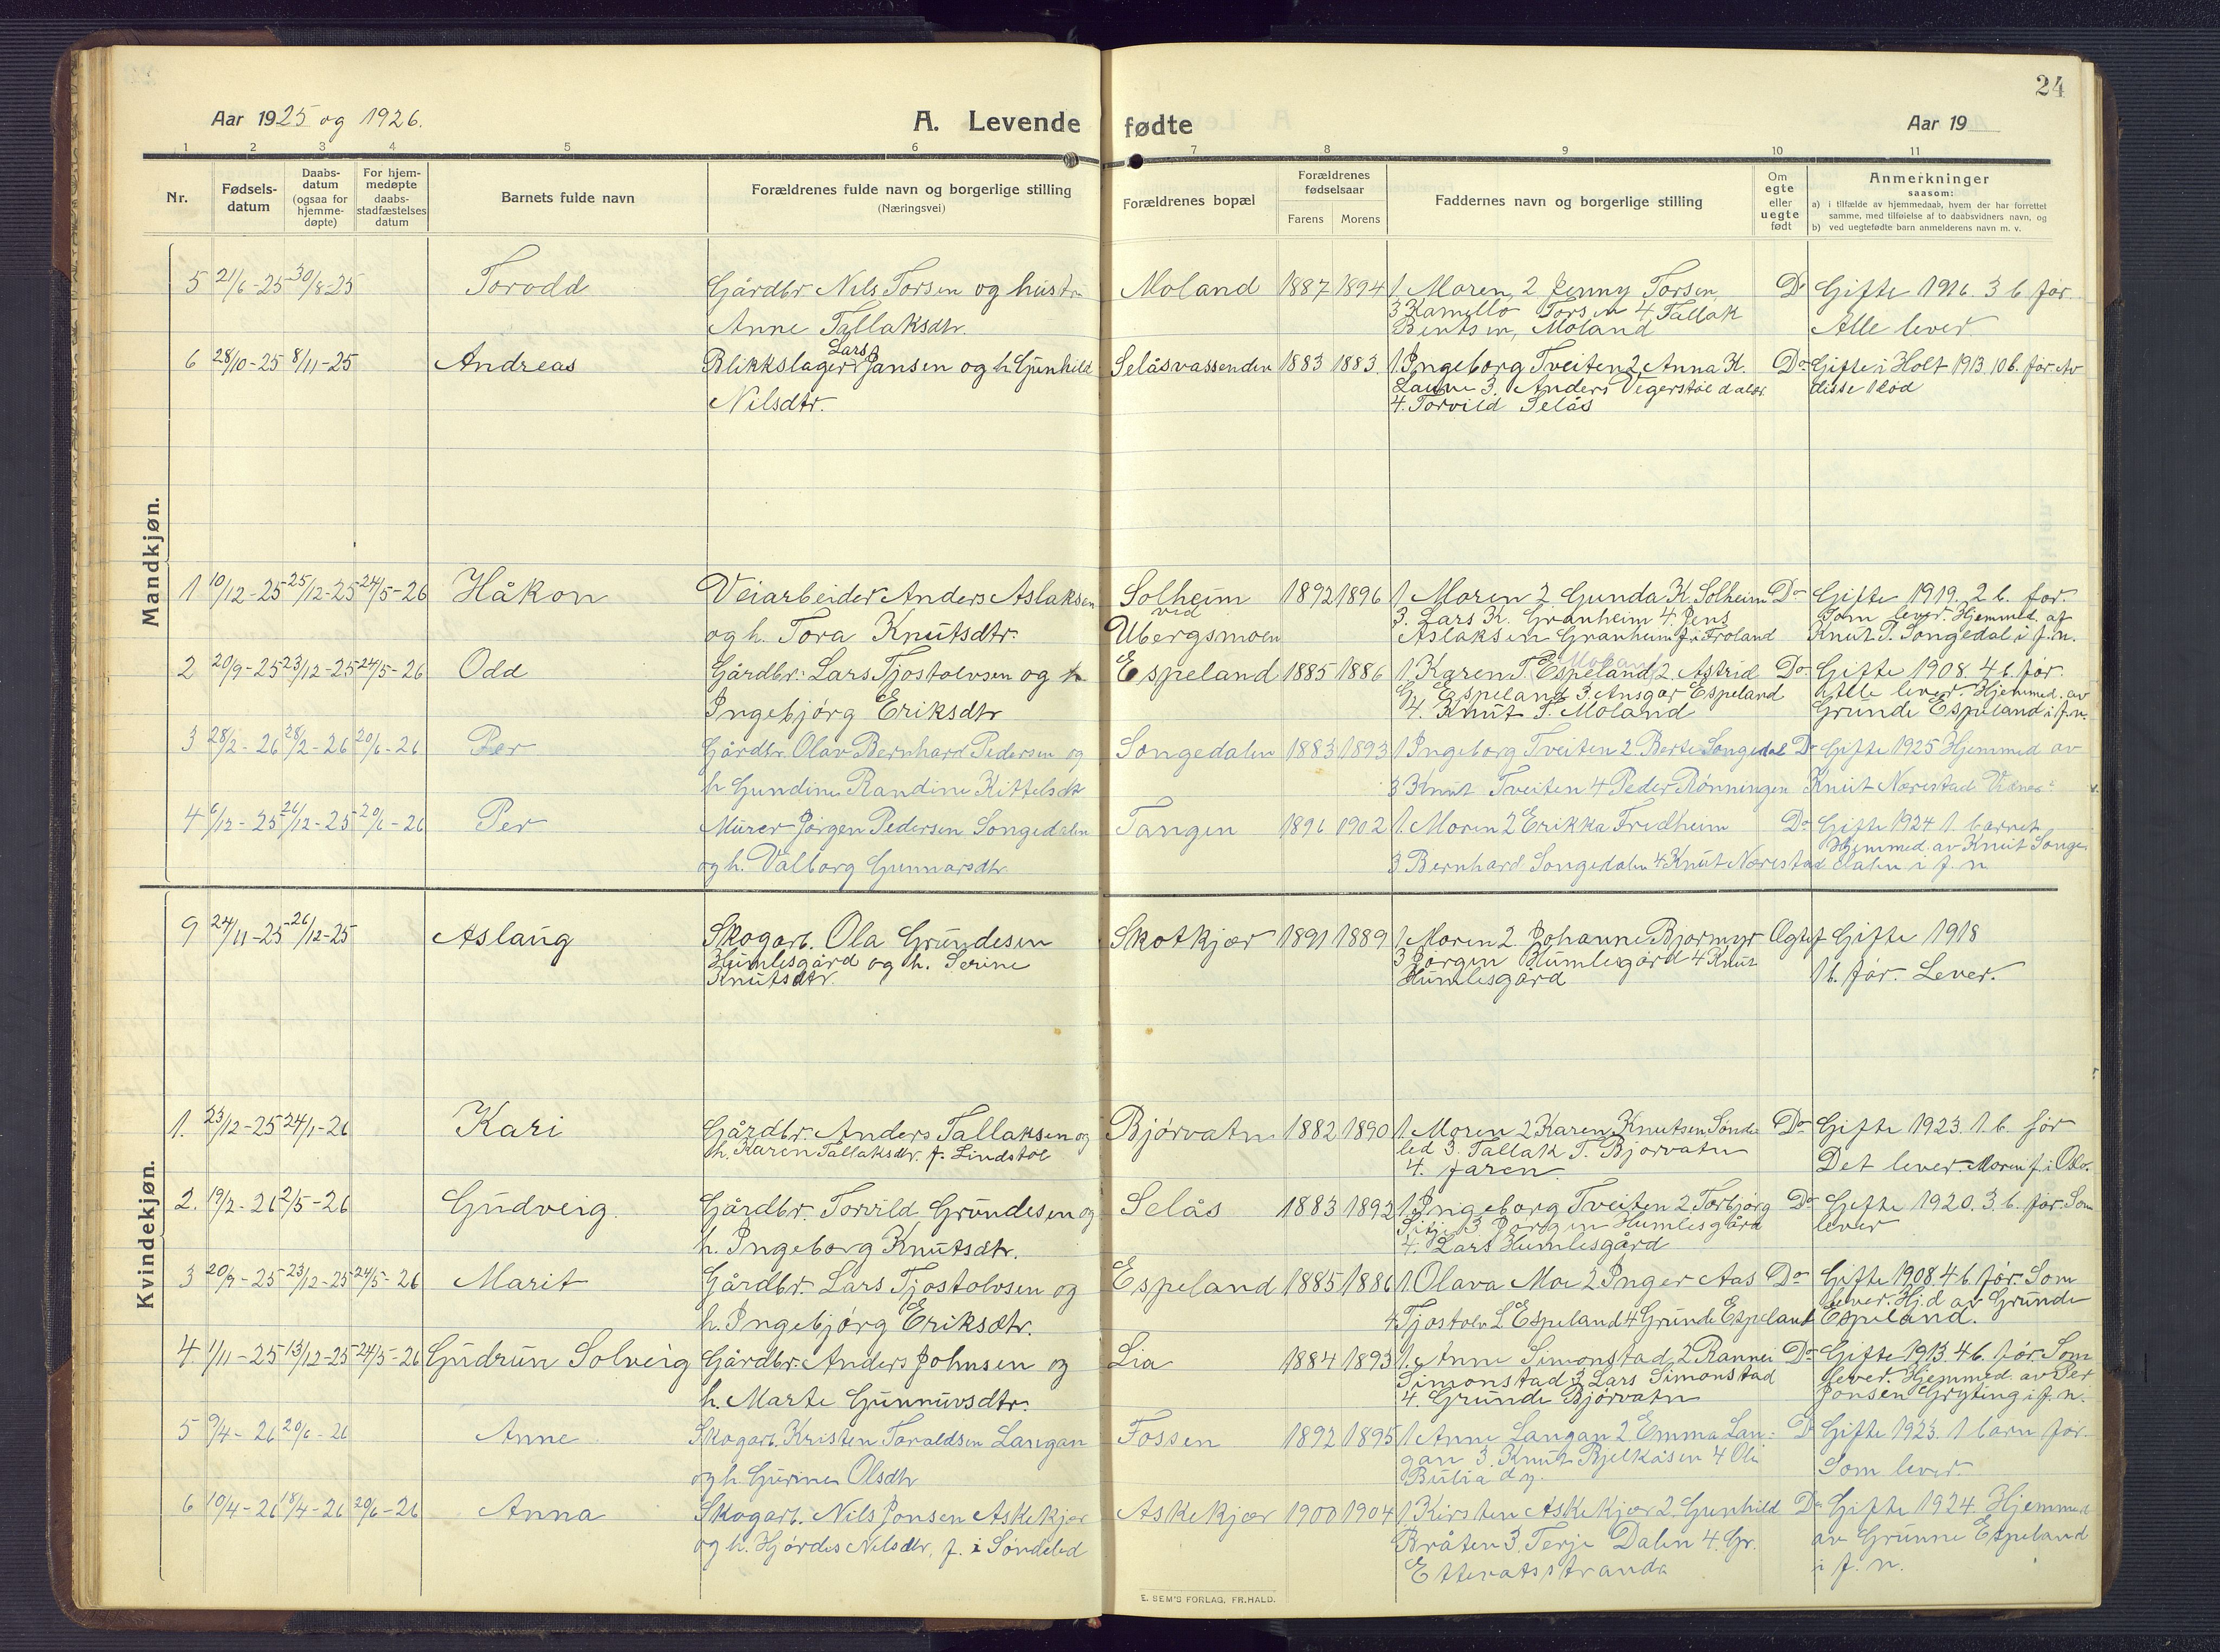 24
Aar 1925 og 1926.
A. Levende fødte
Aar 19
1 2 3 4 5 6 7 8 9 10 11
Nr.
Fødsels-
datum
Daabs-
datum
(ogsaa for
hjemme-
døpte)
For hjem-
medøpte
daabs-
stadfæstelses
datum
Barnets fulde navn
Forældrenes fulde navn og borgerlige stilling
(Næringsvei)
Forældrenes bopæl
Forældrenes
fødselsaar
Farens Morens
Faddernes navn og borgerlige stilling
Om
egte
eller
uegte
født
Anmerkninger
saasom:
a) i tilfælde av hjemmedaab, hvem der har forrettet
samme, med tilføielse af to daabsvidners navn, og
b) ved uegtefødte barn anmelderens navn m. v.
Mandkjøn.
5 21/6-25 30/8-25 Torodd Gårdbr. Nils Torsen og hustr. Moland 1887 1894 1. Moren, 2 Jenny Torsen, Do Gifte 1916. 3 b. før.
Anne Tallaksdtr. 3 Kamillo Torsen 4 Tallak
Bentsen, Moland Alle lever.
6 28/10-25 8/11-25 Andreas Blikkslager Lars Jansen og h. Gunhild Selåsvassenden 1883 1883 1. Ingeborg Tveiten 2. Anna K. Do Gifte i Holt 1913. 10 b. før. Av
Nilsdtr. 3. Anders Vegerstøl dalen disse 1 død
4. Torvild Selås
1 10/12-25 25/12-25 24/5-26 Håkon Veiarbeider Anders Aslaksen Solheim 1892 1896 1. Moren 2. Gunda K. Solheim Do Gifte 1919. 2 b. før.
ved 3. Lars K. Granheim 4. Jens Som lever. Hjemmed. af
og h. Tora Knutsdtr. Ubergsmoen Aslaksen Granheim f. i Froland Knut T. Songedal i f. n.
2 20/9-25 23/12-25 24/5-26 Odd Gårdbr. Lars Tjostolvsen og h. Espeland 1885 1886 1. Karen T. Espeland Moland 2. Astrid Do Gifte 1908. 4 b. før.
G. Espeland 3. Ansgar Espeland Alle lever. Hjemmed. av
Ingebjørg Eriksdtr 4. Knut T. Moland Grunde Espeland i f. n.
3 28/2-26 28/2-26 20/6-26 Per Gårdbr. Olav Bernhard Pedersen og Songedalen 1883 1893 1 Ingeborg Tveiten 2. Berte Songedal Do Gifte 1925 Hjemmed av
h Gundine Randine Kittelsdtr 3 Knut Tveiten 4 Peder Rønningen Knut Nærestad
4 6/12-25 26/12-25 20/6-26 Per Murer Jørgen Pedersen Songedalen Tangen 1896 1902 1. Moren 2 Erikka Fredheim Do Gifte 1924 1. barnet
Hjemmed. av Knut Songe-
og h. Valborg Gunnarsdtr. 3 Bernhard Songedalen 4 Knut Nærestad dalen i f. n
Kvindekjøn.
9 24/11-25 26/12-25 Aslaug Skogarb. Ola Grundesen Skotkjær 1891 1889 1. Moren 2. Johanne Bjørmyr Ægtef Gifte 1918
Humlesgård og h. Serine 3 Jørgen Humlesgård 4 Knut
Knutsdtr. Humlesgård 1 b. før. Lever.
1. 23/12-25 24/1-26 Kari Gårdbr. Anders Tallaksen og Bjørvatn 1882 1890 1. Moren 2 Karen Knutsen Sønde- Do Gifte 1923. 1. b. før
h. Karen Tallaksdtr. f. Lindstøl led 3 Tallak T. Bjørvatn
4. faren Det lever. Moren f. i Oslo.
2. 19/2-26 2/5-26 Gudveig Gårdbr. Torvild Grundesen og Selås 1883 1892 1. Ingeborg Tveiten 2 Torbjørg Do Gifte 1920. 3. b. før. Som
3 Jørgen Humlesgård lever
h. Ingeborg Knutsdtr. 4. Lars Humlesgård
3 20/9-25 23/12-25 24/5-26 Marit Gårdbr. Lars Tjostolvsen og Espeland 1885 1886 1. Olava Moe 2 Inger Aas Do Gifte 1908. 4 b. før. Som
lever. Hj.d av Grunde
h. Ingebjørg Eriksdtr. Tjostolv L Espeland 4 Grunde Espeland Espeland.
4. 1/11-25 13/12-25 24/5-26 Gudrun Solveig Gårdbr. Anders Johnsen og Lia 1884 1893 1. Anne Simonstad 2 Rannei Do Gifte 1913. 4 b. før. Som
Simonstad 3 Lars Simonstad lever. Hjemmed. av Per
h. Marte Gunnuvsdtr. 4. Grunde Bjørvatn Jonsen Gryting i f. n.
5 9/4-26 20/6-26 Anne Skogarb. Kristen Toraldsen Langan Fossen 1892 1895 1 Anne Langan 2 Emma Lan- Do Gifte 1923. 1 barn før.
gan 3. Knut Bjelkåsen 4 Ole
og h. Gurine Olsdtr Bulia d.y. Som lever.
6 10/4-26 18/4-26 20/6-26 Anna Skogarb. Nils Jonsen Askekjær Askekjær 1900 1904 1 Kirsten Askekjær 2. Gunhild Do Gifte 1924. Hjemmed
og h. Hjørdis Nilsdtr, f. i Søndeled Bråten 3. Terje Dalen 4. Gr. av Grunne Espeland
Ettevatsstranda i f. n.
E. SEM'S FORLAG, FR.HALD.